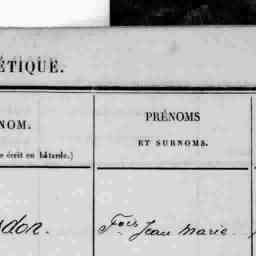 ÉTIQUE.
NOM.
e écrit en bâtarde.)
PRÉNOMS
ET SURNOMS.
don.
Fcois Jean Marie